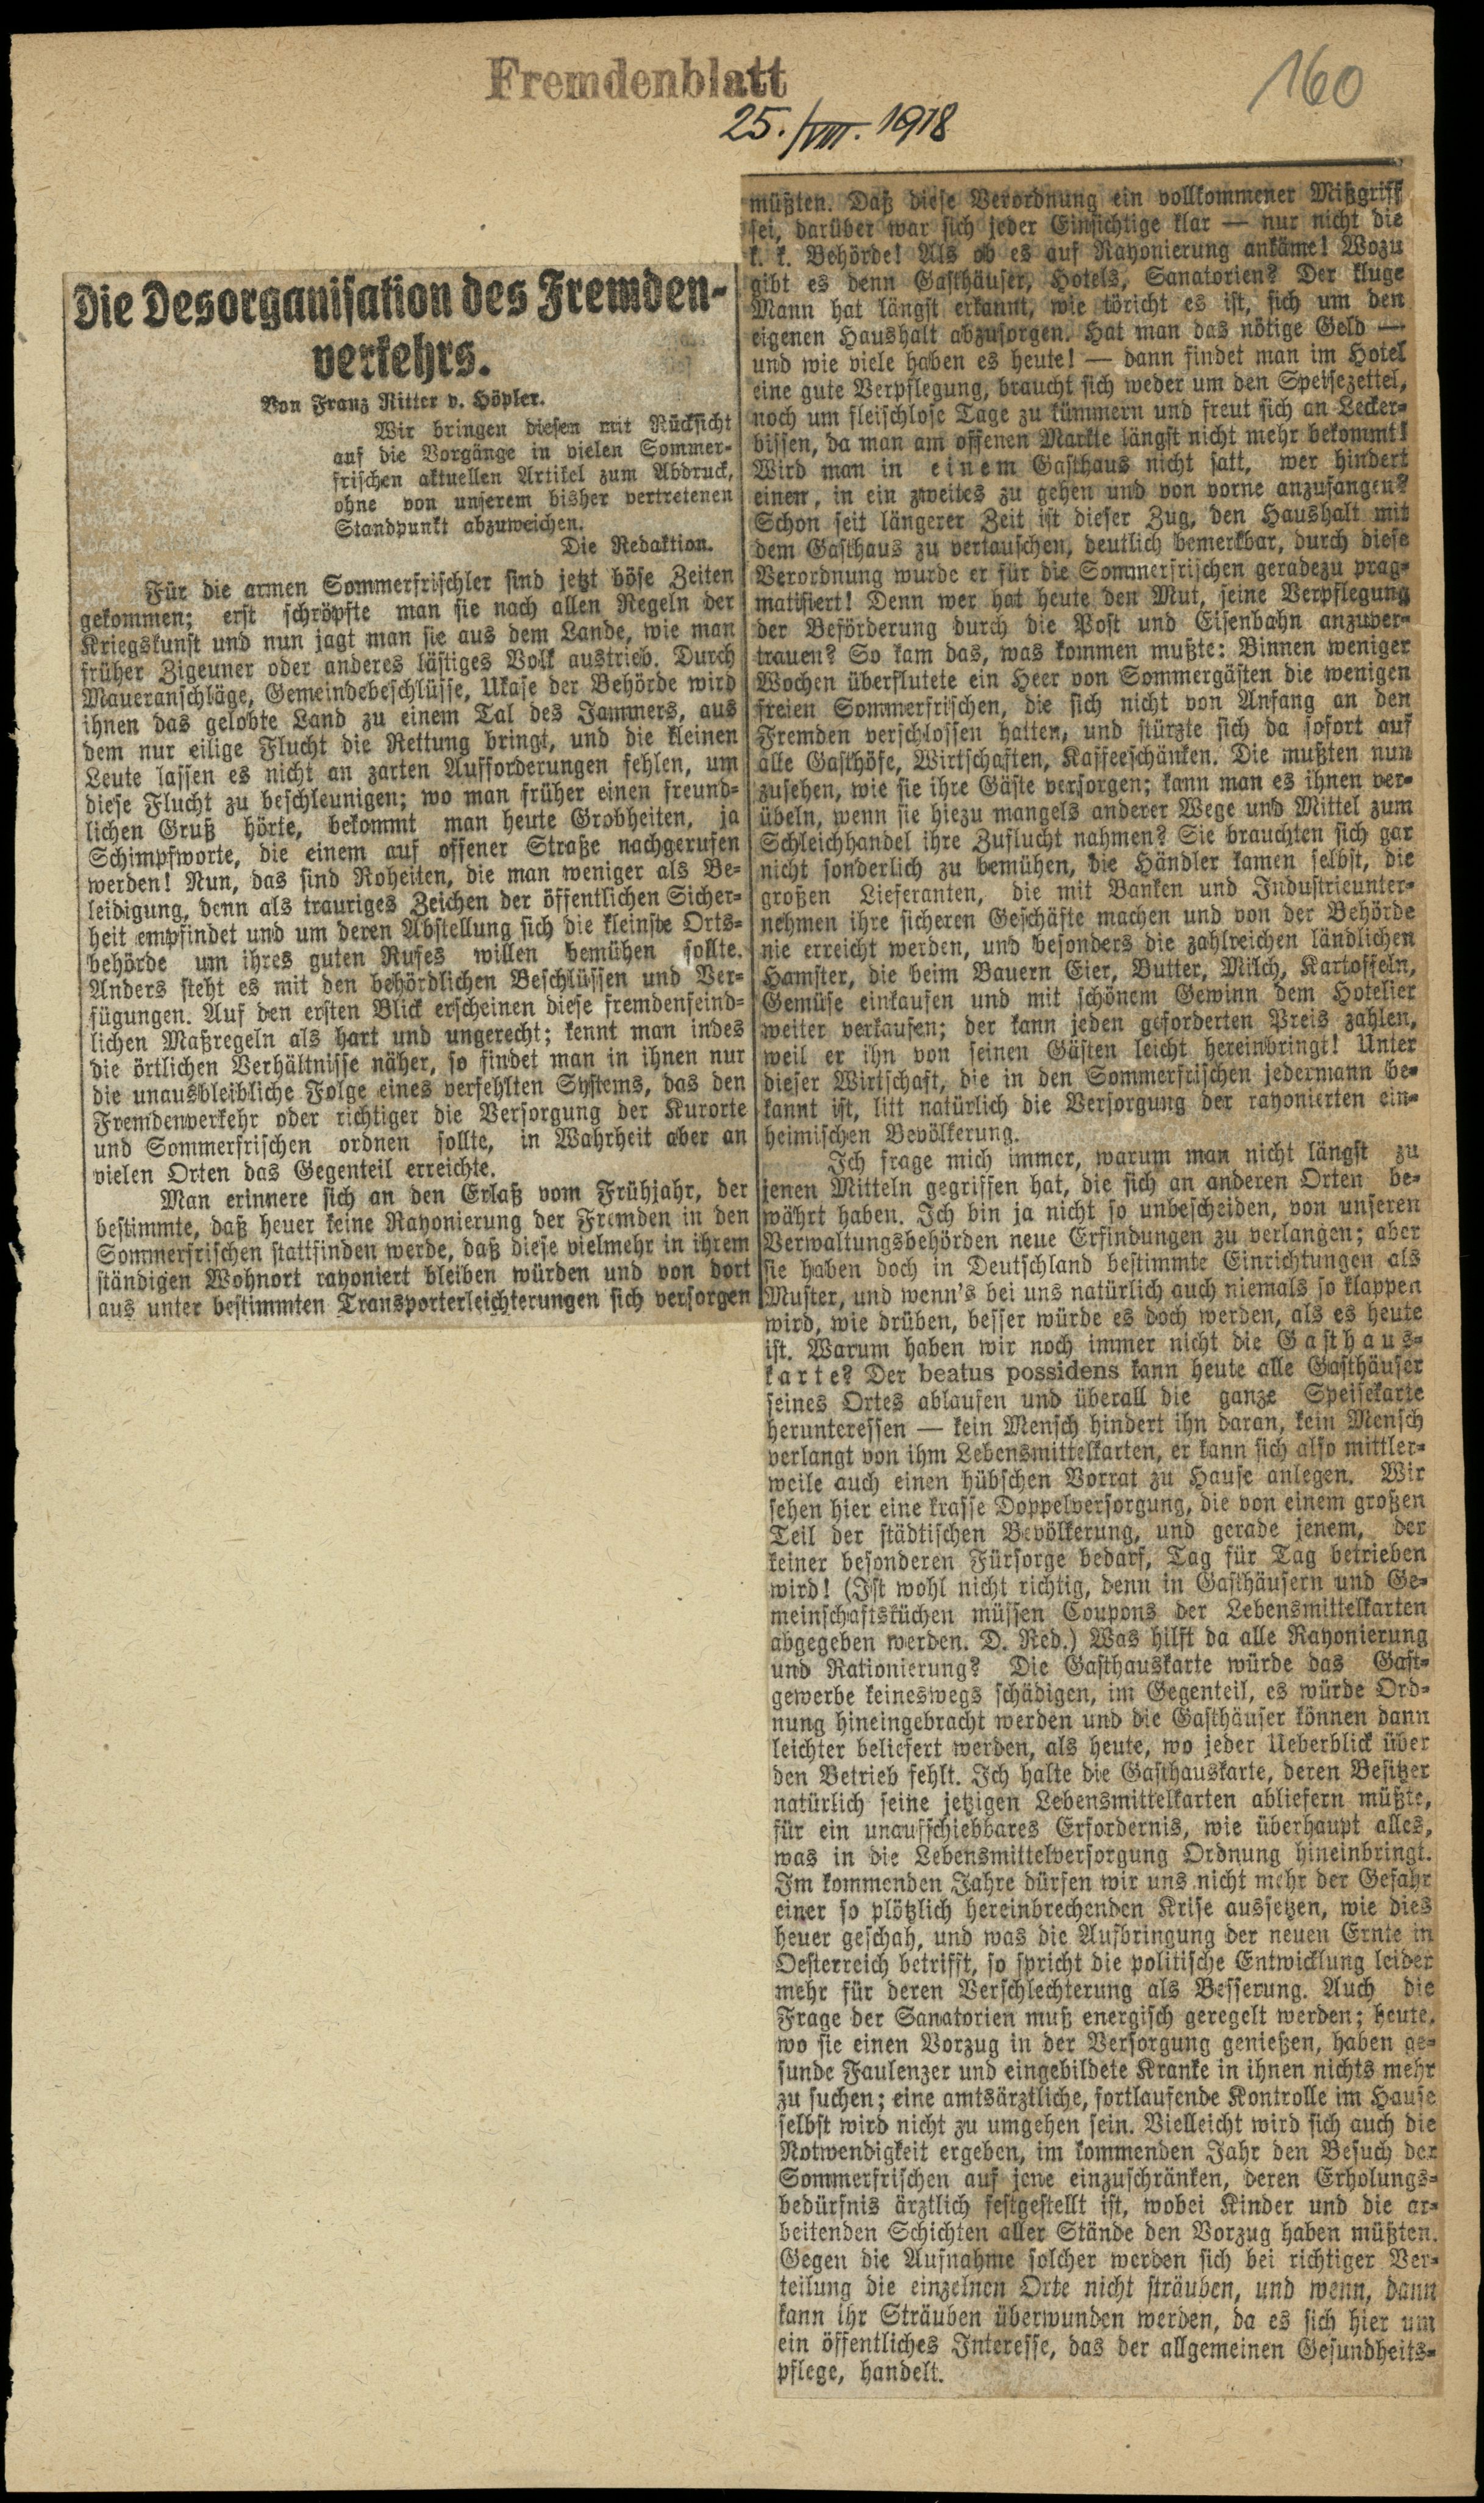 Fremdenblatt
25./VIII. 1918
160
Die Desorganisation des Fremden-
verkehrs.
Von Franz Ritter v. Höpler.
Wir bringen diesen mit Rücksicht
auf die Vorgänge in vielen Sommer-
frischen aktuellen Artikel zum Abdruck,
ohne von unserem bisher vertretenen
Standpunkt abzuweichen.
Die Redaktion.
Für die armen Sommerfrischler sind jetzt böse Zeiten
gekommen; erst schröpfte man sie nach allen Regeln der
Kriegskunst und nun jagt man sie aus dem Lande, wie man
früher Zigeuner oder anderes lästiges Volk austrieb. Durch
Maueranschläge, Gemeindebeschlüsse, Ukase der Behörde wird
ihnen das gelobte Land zu einem Tal des Jammers, aus
dem nur eilige Flucht die Rettung bringt, und die kleinen
Leute lassen es nicht an zarten Aufforderungen fehlen, um
diese Flucht zu beschleunigen; wo man früher einen freund-
lichen Gruß hörte, bekommt man heute Grobheiten, ja
Schimpfworte, die einem auf offener Straße nachgerufen
werden! Nun, das sind Roheiten, die man weniger als Be-
leidigung, denn als trauriges Zeichen der öffentlichen Sicher-
heit empfindet und um deren Abstellung sich die kleinste Orts-
behörde um ihres guten Rufes willen bemühen sollte.
Anders steht es mit den behördlichen Beschlüssen und Ver-
fügungen. Auf den ersten Blick erscheinen diese fremdenfeind-
lichen Maßregeln als hart und ungerecht; kennt man indes
die örtlichen Verhältnisse näher, so findet man in ihnen nur
die unausbleibliche Folge eines verfehlten Systems, das den
Fremdenverkehr oder richtiger die Versorgung der Kurorte
und Sommerfrischen ordnen sollte, in Wahrheit aber an
vielen Orten das Gegenteil erreichte.
Man erinnere sich an den Erlaß vom Frühjahr, der
bestimmte, daß heuer keine Rayonierung der Fremden in den
Sommerfrischen stattfinden werde, daß diese vielmehr in ihrem
ständigen Wohnort rayoniert bleiben würden und von dort
aus unter bestimmten Transporterleichterungen sich versorgen
müßten. Daß diese Verordnung ein vollkommener Mißgriff
sei, darüber war sich jeder Einsichtige klar — nur nicht die
k. k. Behörde! Als ob es auf Rayonierung ankäme! Wozu
gibt es denn Gasthäuser, Hotels, Sanatorien? Der kluge
Mann hat längst erkannt, wie töricht es ist, sich um den
eigenen Haushalt abzusorgen. Hat man das nötige Geld —
und wie viele haben es heute! — dann findet man im Hotel
eine gute Verpflegung, braucht sich weder um den Speisezettel,
noch um fleischlose Tage zu kümmern und freut sich an Lecker-
bissen, da man am offenen Markte längst nicht mehr bekommt!
Wird man in einem Gasthaus nicht satt, wer hindert
einen, in ein zweites zu gehen und von vorne anzufangen?
Schon seit längerer Zeit ist dieser Zug, den Haushalt mit
dem Gasthaus zu vertauschen, deutlich bemerkbar, durch diese
Verordnung wurde er für die Sommerfrischen geradezu prag-
matisiert! Denn wer hat heute den Mut, seine Verpflegung
der Beförderung durch die Post und Eisenbahn anzuver-
trauen? So kam das, was kommen mußte: Binnen weniger
Wochen überflutete ein Heer von Sommergästen die wenigen
freien Sommerfrischen, die sich nicht von Anfang an den
Fremden verschlossen hatten, und stürzte sich da sofort auf
alle Gasthöfe, Wirtschaften, Kaffeeschänken. Die mußten nun
zusehen, wie sie ihre Gäste versorgen; kann man es ihnen ver-
übeln, wenn sie hiezu mangels anderer Wege und Mittel zum
Schleichhandel ihre Zuflucht nahmen? Sie brauchten sich gar
nicht sonderlich zu bemühen, die Händler kamen selbst, die
großen Lieferanten, die mit Banken und Industrieunter-
nehmen ihre sicheren Geschäfte machen und von der Behörde
nie erreicht werden, und besonders die zahlreichen ländlichen
Hamster, die beim Bauern Eier, Butter, Milch, Kartoffeln,
Gemüse einkaufen und mit schönem Gewinn dem Hotelier
weiter verkaufen; der kann jeden geforderten Preis zahlen,
weil er ihn von seinen Gästen leicht hereinbringt! Unter
dieser Wirtschaft, die in den Sommerfrischen jedermann be-
kannt ist, litt natürlich die Versorgung der rayonierten ein-
heimischen Bevölkerung.
Ich frage mich immer, warum man nicht längst zu
jenen Mitteln gegriffen hat, die sich an anderen Orten be-
währt haben. Ich bin ja nicht so unbescheiden, von unseren
Verwaltungsbehörden neue Erfindungen zu verlangen; aber
sie haben doch in Deutschland bestimmte Einrichtungen als
Muster, und wenn's bei uns natürlich auch niemals so klappen
wird, wie drüben, besser würde es doch werden, als es heute
ist. Warum haben wir noch immer nicht die Gasthaus-
karte? Der beatus possidens kann heute alle Gasthäuser
seines Ortes ablaufen und überall die ganze Speisekarte
herunteressen — kein Mensch hindert ihn daran, kein Mensch
verlangt von ihm Lebensmittelkarten, er kann sich also mittler-
weile auch einen hübschen Vorrat zu Hause anlegen. Wir
sehen hier eine krasse Doppelversorgung, die von einem großen
Teil der städtischen Bevölkerung, und gerade jenem, der
keiner besonderen Fürsorge bedarf, Tag für Tag betrieben
wird! (Ist wohl nicht richtig, denn in Gasthäusern und Ge-
meinschaftsküchen müssen Coupons der Lebensmittelkarten
abgegeben werden. D. Red.) Was hilft da alle Rayonierung
und Rationierung? Die Gasthauskarte würde das Gast-
gewerbe keineswegs schädigen, im Gegenteil, es würde Ord-
nung hineingebracht werden und die Gasthäuser können dann
leichter beliefert werden, als heute, wo jeder Ueberblick über
den Betrieb fehlt. Ich halte die Gasthauskarte, deren Besitzer
natürlich seine jetzigen Lebensmittelkarten abliefern müßte,
für ein unaufschiebbares Erfordernis, wie überhaupt alles,
was in die Lebensmittelversorgung Ordnung hineinbringt.
Im kommenden Jahre dürfen wir uns nicht mehr der Gefahr
einer so plötzlich hereinbrechenden Krise aussetzen, wie dies
heuer geschah, und was die Aufbringung der neuen Ernte in
Oesterreich betrifft, so spricht die politische Entwicklung leider
mehr für deren Verschlechterung als Besserung. Auch die
Frage der Sanatorien muß energisch geregelt werden; heute,
wo sie einen Vorzug in der Versorgung genießen, haben ge-
sunde Faulenzer und eingebildete Kranke in ihnen nichts mehr
zu suchen; eine amtsärztliche, fortlaufende Kontrolle im Hause
selbst wird nicht zu umgehen sein. Vielleicht wird sich auch die
Notwendigkeit ergeben, im kommenden Jahr den Besuch der
Sommerfrischen auf jene einzuschränken, deren Erholungs-
bedürfnis ärztlich festgestellt ist, wobei Kinder und die ar-
beitenden Schichten aller Stände den Vorzug haben müßten.
Gegen die Aufnahme solcher werden sich bei richtiger Ver-
teilung die einzelnen Orte nicht sträuben, und wenn, dann
kann ihr Sträuben überwunden werden, da es sich hier um
ein öffentliches Interesse, das der allgemeinen Gesundheits-
pflege, handelt.